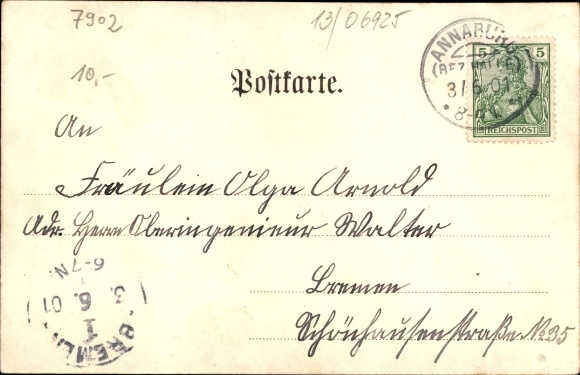 7902
13/06925
10,-
ANNABURG
(BEZ. HALLE)
3/6.01
* 8-9V *
5 5
REICHSPOST
Postkarte.
An
Fräulein Olga Arnold
Adr. Herrn Oberingenieur Walter
Bremen
Schönhausenstraße No 35
BREMEN
1
3. 6. 01
6-7N.